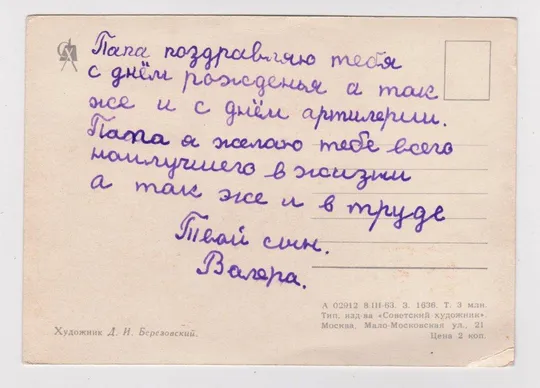 Папа поздравляю тебя
с днём рожденья а так
же и с днём артилерии.
Папа я желаю тебе всего
наилучшего в жизни
а так же и в труде
Твой сын.
Валера.
А 02912 8/III-63. З. 1636. Т. 3 млн.
Тип. изд-ва «Советский художник».
Москва, Мало-Московская ул., 21
Цена 2 коп.
Художник Д. И. Березовский.